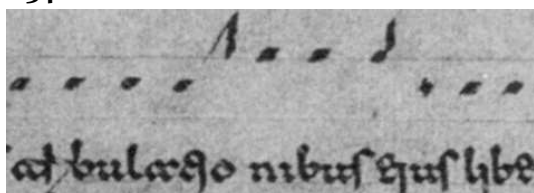 s tri bulatio nibus eius libe